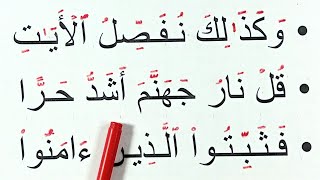 • وَكَذَٰلِكَ نُفَصِّلُ ٱلْأَيَٰتِ
• قُلْ نَارُ جَهَنَّمَ أَشَدُّ حَرًّا
• فَثَبِّتُوا۟ ٱلَّذِينَ ءَامَنُوا۟